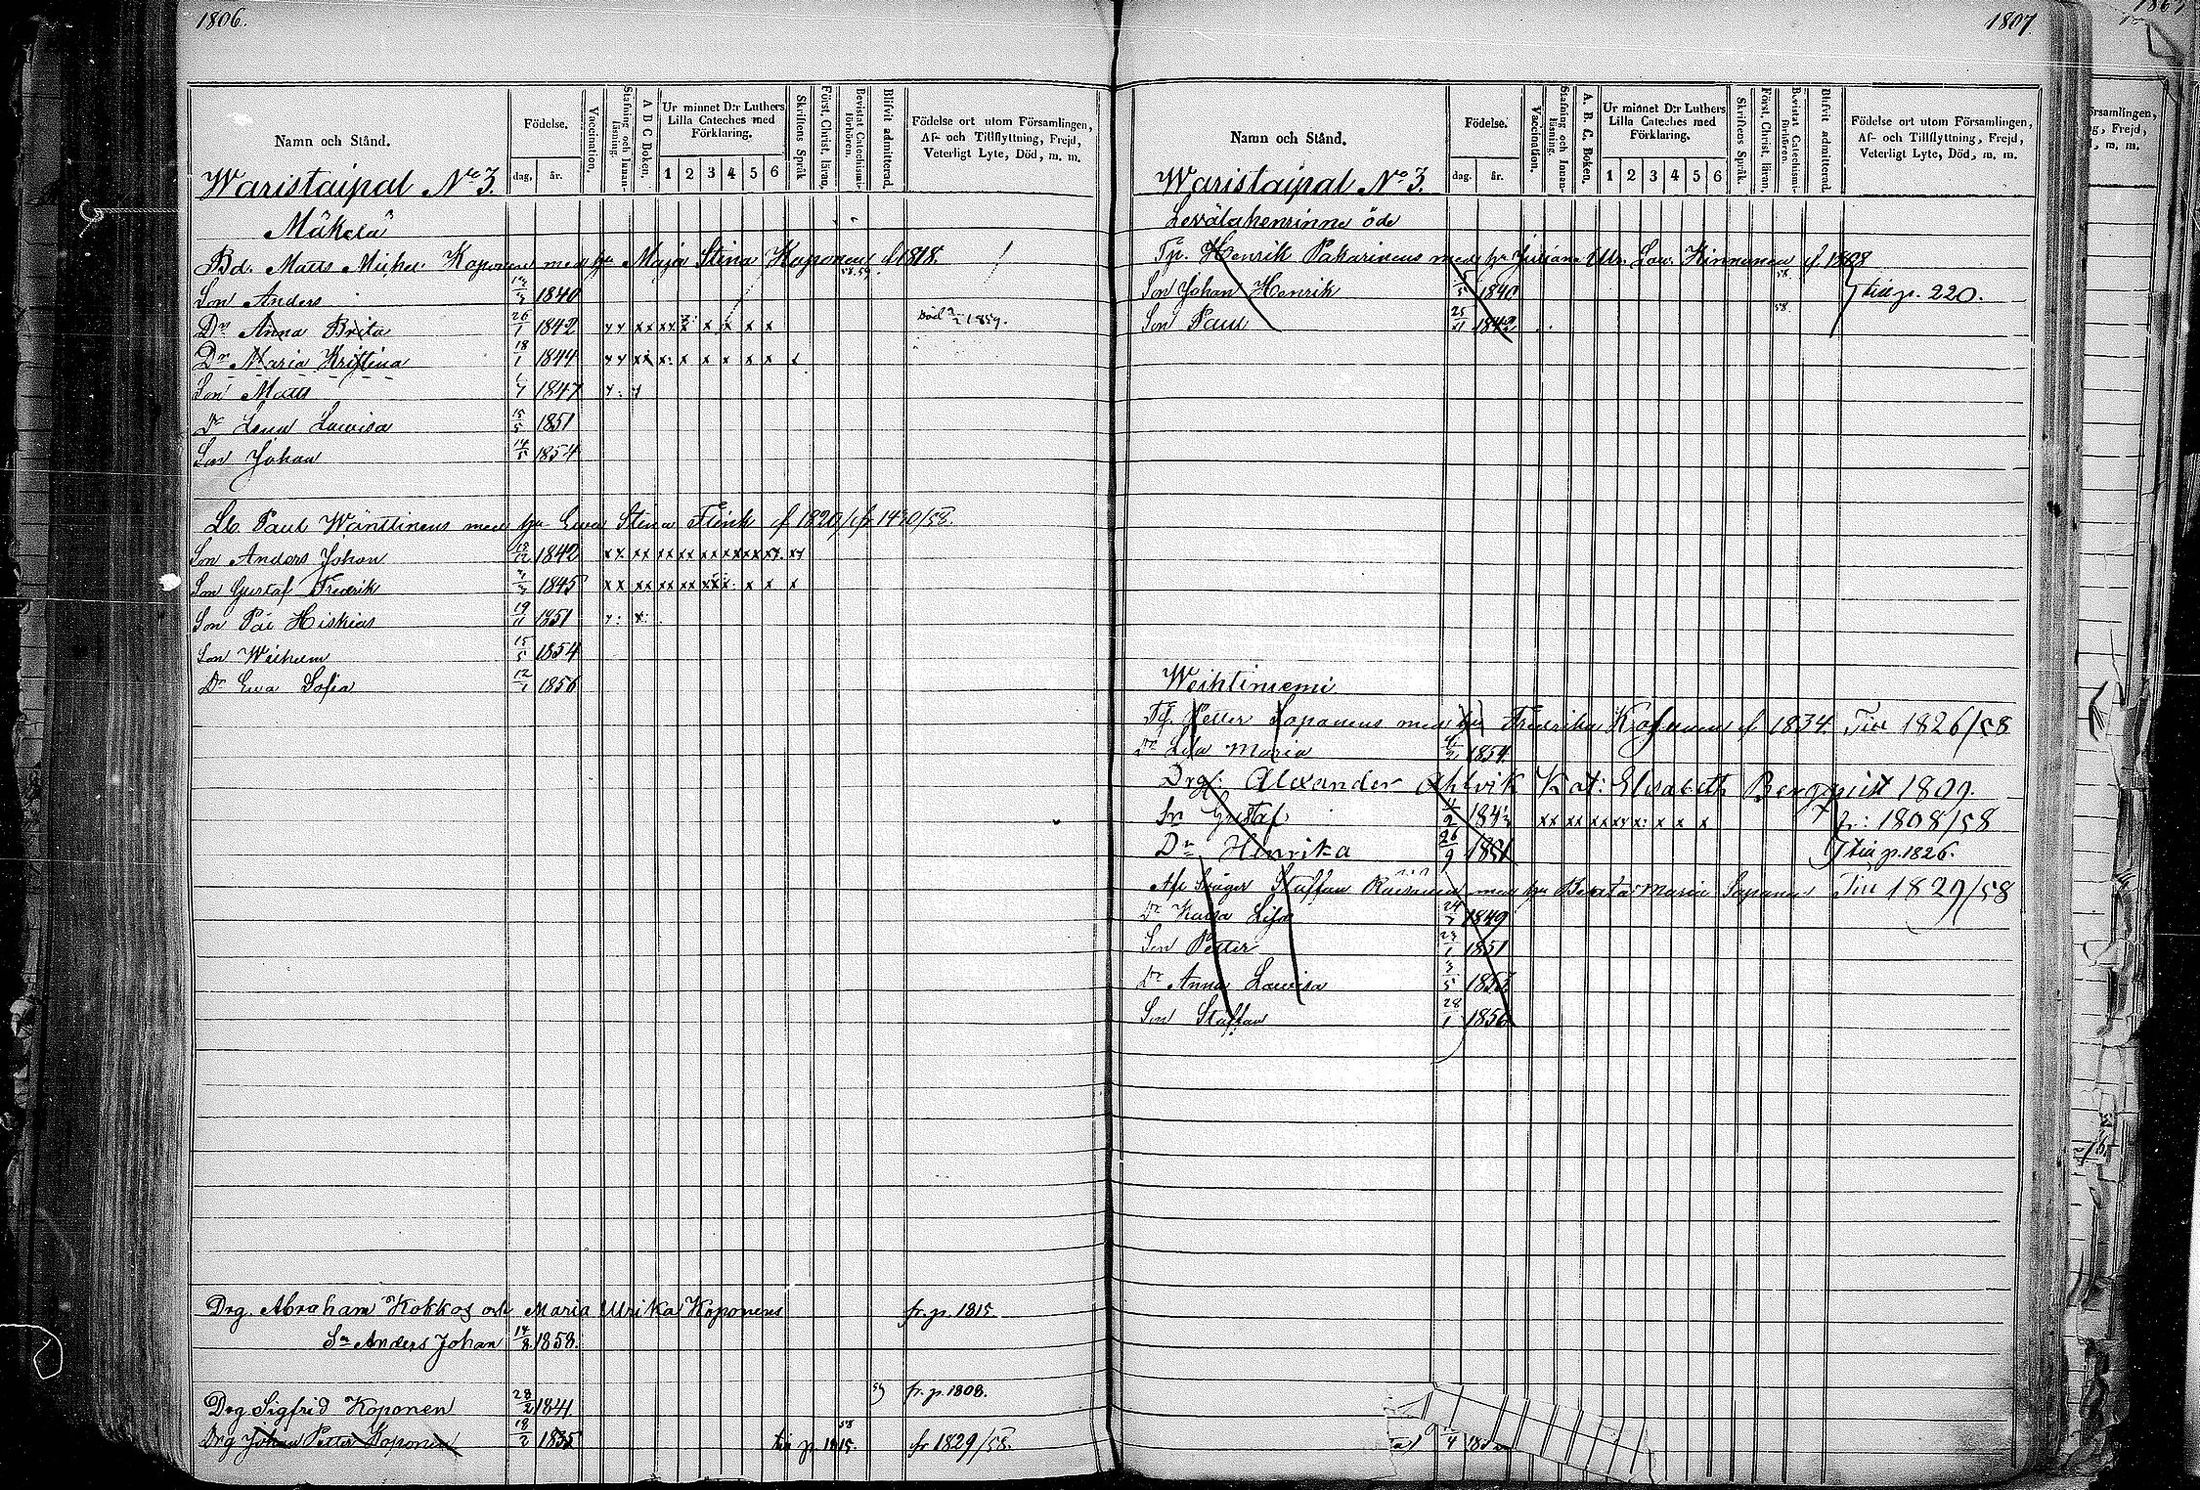 1806.
Namn och Stånd.
Födelse.
dag. år.
Vaccination.
Stafning och Innanläsning.
A B C Boken.
Ur minnet D:r Luthers Lilla Cateches med Förklaring.
1 2 3 4 5 6
Skriftens Språk
Först. Christ. läran.
Bevistat Catechismiförhören.
Blifvit admitterad.
Födelse ort utom Församlingen, Af- och Tillflyttning, Frejd, Veterligt Lyte, Död, m. m.
Waristaipal No 3.
Mäkelä
Bd. Matts Michel Koponens med hu Maja Stina Koponens f 1818.
58. 59.
Son Anders 1840
Dr Anna Brita 26/1 1842 död 1859.
Dr Maria Kristina 18/1 1844
Son Matts 1847
Dr Lena Lowisa 15/5 1851
Son Johan 14/5 1854
Lb. Paul Wänttinens med hu Ewa Stina Flink f 1820 fr 1420/58.
Son Anders Johan 1842
Son Gustaf Fredrik 1845
Son Pål Hiskias 19/11 1851
Son Wilhelm 15/5 1854
Dr Ewa Sofia 12/1 1856
Drg. Abraham Kokkos och Maria Ulrika Koponens fr. p. 1815
Sn Anders Johan 14/8 1858.
Drg Sigfrid Koponen 28/2 1841. 59 fr. p. 1808.
Drg Johan Petter Koponen 18/2 1835 till p. 1815. 58 fr 1829/58.
1807
Namn och Stånd.
Födelse.
dag. år.
Vaccination.
Stafning och Innanläsning.
A. B. C. Boken.
Ur minnet D:r Luthers Lilla Cateches med Förklaring.
1 2 3 4 5 6
Skriftens Språk.
Först. Christ. läran.
Bevistat Catechismiförhören.
Blifvit admitterad.
Födelse ort utom Församlingen, Af- och Tillflyttning, Frejd, Veterligt Lyte, Död, m. m.
Waristaipal No 3.
öde
Tp. Henrik Pakarinens med hu Juliana Ulr. Lov. Hinnonen f 1808
Son Johan Henrik /5 1840 58. till p. 220.
Son Paul 25/11 1842 58.
Weihtiniemi
Petter Sapanens med hu Fredrika Kofanen f 1834. Till 1826/58
Dr Lisa Maria 1854
Drg: Alexander Ahlvik Kat: Elisabeth Bergqvist 1809.
Sn Gustaf 1843 fr: 1808/58
Dr Henrika 26/9 1851 till p. 1826.
Afl Staffan Räisänen med hu Beata Maria Sapanen Till 1829/58
Dr Kaisa Lisa 1849
Son Petter 23/1 1851
Dr Anna Lowisa 3/5 1853
Son Staffan 28/1 1856